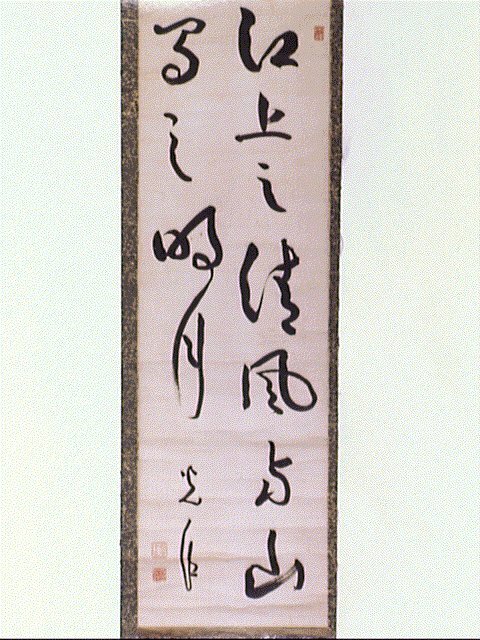 江上之清風与山
間之明月